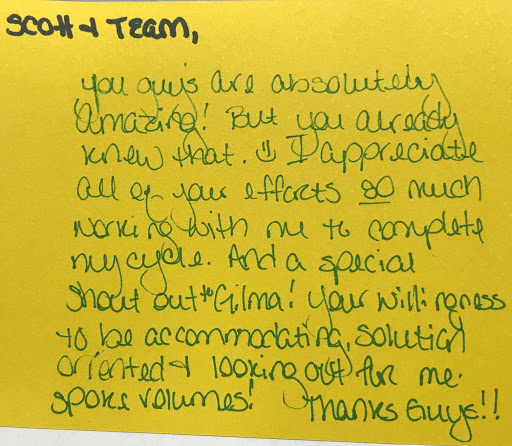 Scott & Team,
you guys are absolutely
amazing! But you already
knew that. I appreciate
all of your efforts so much
working with me to complete
my cycle. And a special
shout out to Gilma! Your willingness
to be accommodating, solution
oriented & looking out for me
spoke volumes! Thanks Guys!!